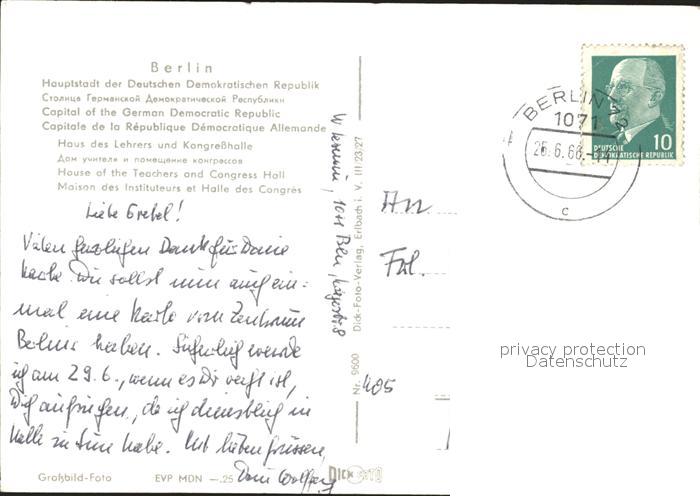 Berlin
Hauptstadt der Deutschen Demokratischen Republik
Столица Германской Демократической Республики
Capital of the German Democratic Republic
Capitale de la République Démocratique Allemande
Haus des Lehrers und Kongreßhalle
Дом учителя и помещение конгрессов
House of the Teachers and Congress Hall
Maison des Instituteurs et Halle des Congrès
Liebe Gretel!
Vielen herzlichen Dank für Deine
Karte. Du sollst nun auch ein-
mal eine Karte vom Zentrum
Berlins haben. Sicherlich werde
ich am 29.6., wenn es Dir recht ist,
Dich aufsuchen, da ich dienstlich in
Halle zu tun habe. Mit lieben Grüssen,
Dein Wolfgang
Großbild-Foto EVP MDN –.25
DICK FOTO
1071 Bln.
Nr. 9600 Dick-Foto-Verlag, Erlbach i. V. III/23/27
An
Frl.
405
BERLIN
1071
6.66.
c
10
DEUTSCHE
DEMOKRATISCHE REPUBLIK
privacy protection
Datenschutz